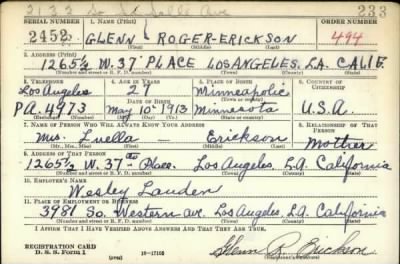 2133 So. La Salle Ave 233
SERIAL NUMBER 1. NAME (Print) ORDER NUMBER
2452 GLENN ROGER-ERICKSON 494
(First) (Middle) (Last)
2. ADDRESS (Print)
1265½ W. 37th PLACE LOS ANGELES. L.A. CALIF.
(Number and street or R. F. D. number) (Town) (County) (State)
3. TELEPHONE 4. AGE IN YEARS 5. PLACE OF BIRTH 6. COUNTRY OF CITIZENSHIP
Los Angeles 27 Minneapolis
DATE OF BIRTH (Town or county)
PA. 4973 May 10th 1913 Minnesota U.S.A.
(Exchange) (Number) (Mo.) (Day) (Yr.) (State or country)
7. NAME OF PERSON WHO WILL ALWAYS KNOW YOUR ADDRESS 8. RELATIONSHIP OF THAT PERSON
Mrs. Luella — Erickson Mother
(Mr., Mrs., Miss) (First) (Middle) (Last)
9. ADDRESS OF THAT PERSON
1265½ W. 37th Place. Los Angeles, L.A. California
(Number and street or R. F. D. number) (Town) (County) (State)
10. EMPLOYER'S NAME
Wesley Lauden
11. PLACE OF EMPLOYMENT OR BUSINESS
3981 So. Western ave. Los Angeles, L.A. California
(Number and street or R. F. D. number) (Town) (County) (State)
I AFFIRM THAT I HAVE VERIFIED ABOVE ANSWERS AND THAT THEY ARE TRUE.
REGISTRATION CARD
D. S. S. Form 1 16—17105 Glenn R. Erickson
(Registrant's signature)